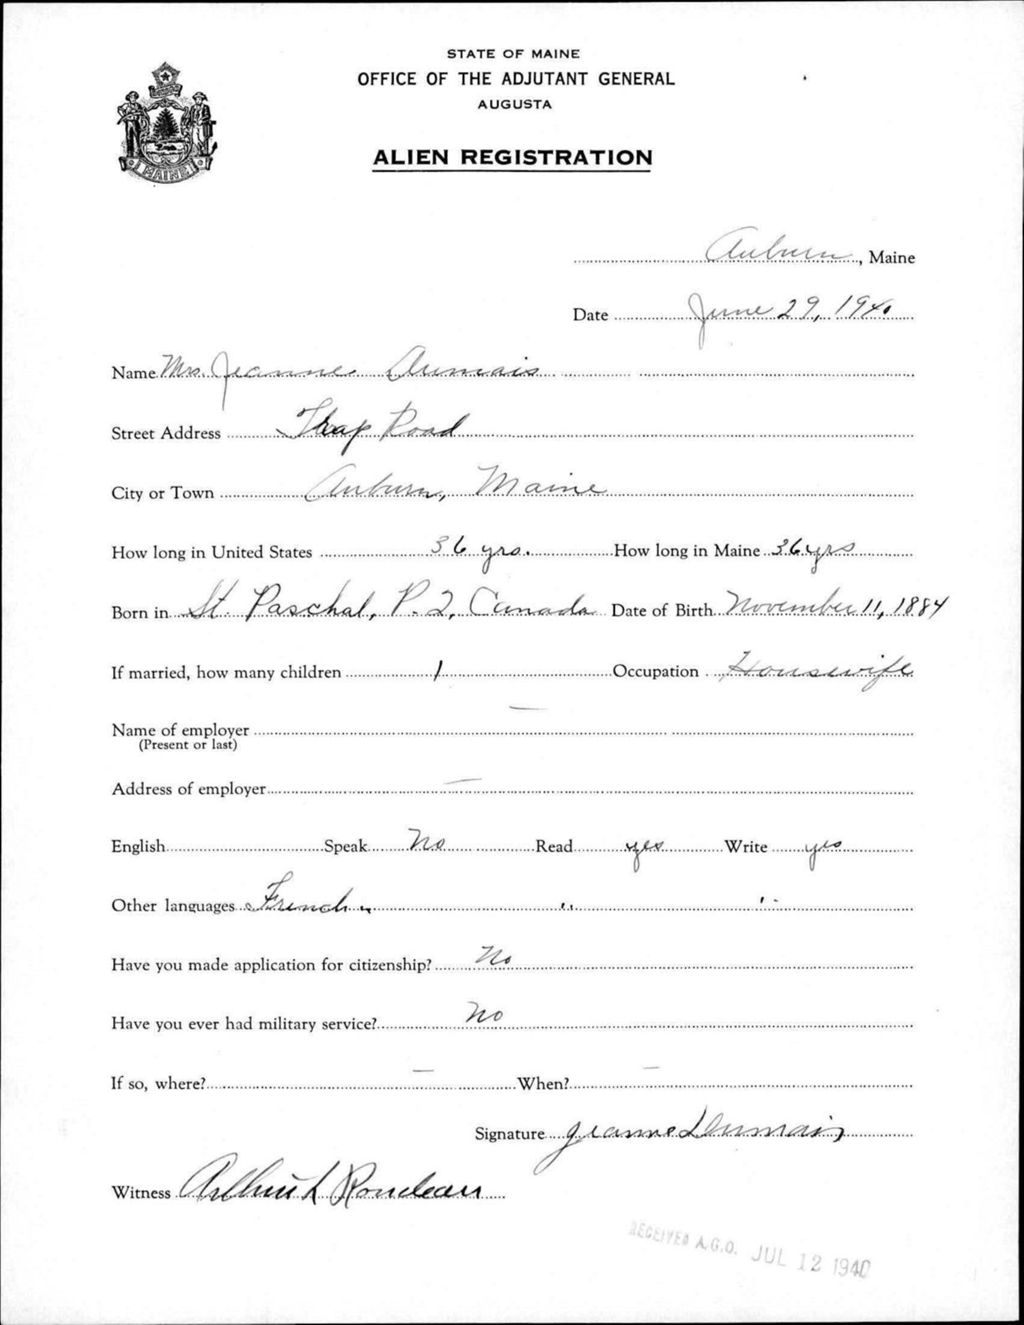 STATE OF MAINE
OFFICE OF THE ADJUTANT GENERAL
AUGUSTA
ALIEN REGISTRATION
MAINE
Auburn, Maine
Date June 29, 1940
Name Mrs. Jeanne Dumais
Street Address Road
City or Town Auburn, Maine
How long in United States 36 yrs. How long in Maine 36 yrs
Born in St. Paschal, P. Q, Canada Date of Birth November 11, 1884
If married, how many children 1 Occupation Housewife
Name of employer —
(Present or last)
Address of employer —
English Speak No Read yes Write yes
Other languages French " " "
Have you made application for citizenship? No
Have you ever had military service? No
If so, where? — When? —
Signature Jeanne Dumais
Witness L Rondeau
RECEIVED A.G.O. JUL 12 1940